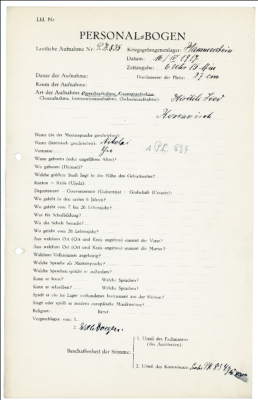 Lfd. Nr.
PERSONAL=BOGEN
Lautliche Aufnahme Nr.: P.K. 838 Kriegsgefangenenlager: Hammerstein
Datum:
Zeitangabe:
Dauer der Aufnahme: Durchmesser der Platte: 27 cm
Raum der Aufnahme:
Art der Aufnahme
Koreanisch
Name (in der Muttersprache geschrieben):
Name (lateinisch geschrieben): Nikolai
Vorname:
Wann geboren (oder ungefähres Alter)?
Wo geboren (Heimat)?
Welche größere Stadt liegt in der Nähe des Geburtsortes?
Kanton — Kreis (Ujedz):
Departement — Gouvernement (Gubernija) — Grafschaft (County):
Wo gelebt in den ersten 6 Jahren?
Wo gelebt vom 7. bis 20. Lebensjahr?
Was für Schulbildung?
Wo die Schule besucht?
Wo gelebt vom 20. Lebensjahr?
Aus welchem Ort (Ort und Kreis angeben) stammt der Vater?
Aus welchem Ort (Ort und Kreis angeben) stammt die Mutter?
Welchem Volksstamm angehörig?
Welche Sprache als Muttersprache?
Welche Sprachen spricht er außerdem?
Kann er lesen? Welche Sprachen?
Kann er schreiben? Welche Sprachen?
Spielt er ein im Lager vorhandenes Instrument aus der Heimat?
Singt oder spielt er modern europäische Musikweisen?
Religion: Beruf:
Vorgeschlagen von: 1.
2.
Beschaffenheit der Stimme:
1. Urteil des Fachmannes
(des Assistenten):
2. Urteil des Kommissars: